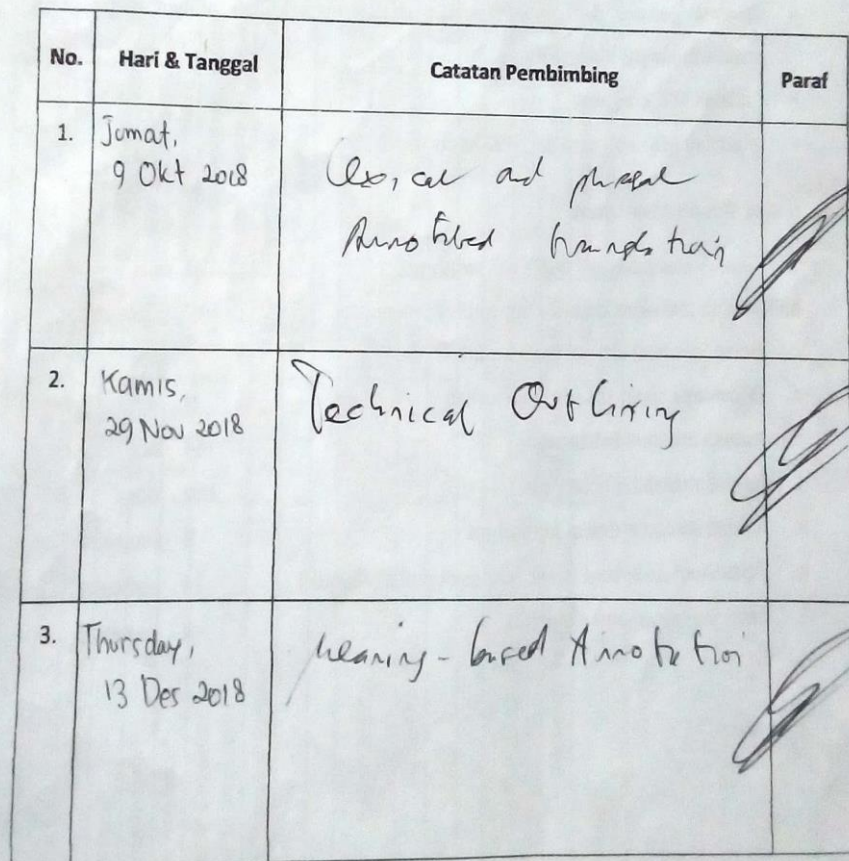 No. Hari & Tanggal Catatan Pembimbing Paraf
1. Jumat,
9 Okt 2018
Lexical and phrasal
Annotated translation
2. Kamis,
29 Nov 2018
Technical Outlining
3. Thursday,
13 Des 2018
Meaning-based Annotation